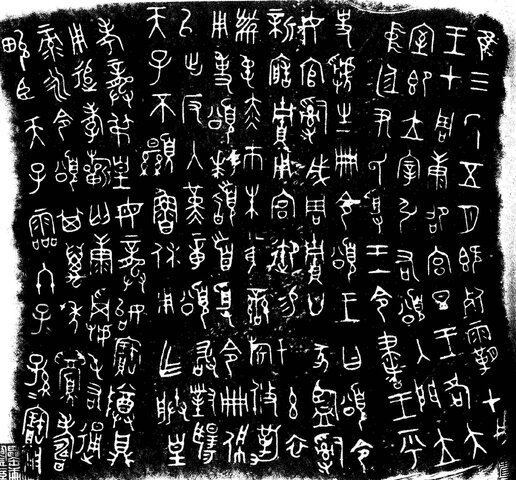 隹三年五月既死霸甲戌
王才周康卲宮旦王各大
室即立宰引右頌入門立中
廷尹氏受王令書王乎
史虢生冊令頌王曰頌令
女官𤔲成周貯廿家監𤔲
新造貯用宮御易女玄衣
黹屯赤巿朱黃䜌旂攸勒
用事頌拜稽首受令冊佩
以出反入堇章頌敢對揚
天子不顯魯休用乍朕皇
考龔弔皇母龔姒寶尊鼎
用追孝祈匄康𩵦屯右通
彔永令頌其萬年眉壽
畯臣天子霝冬子子孫孫寶用